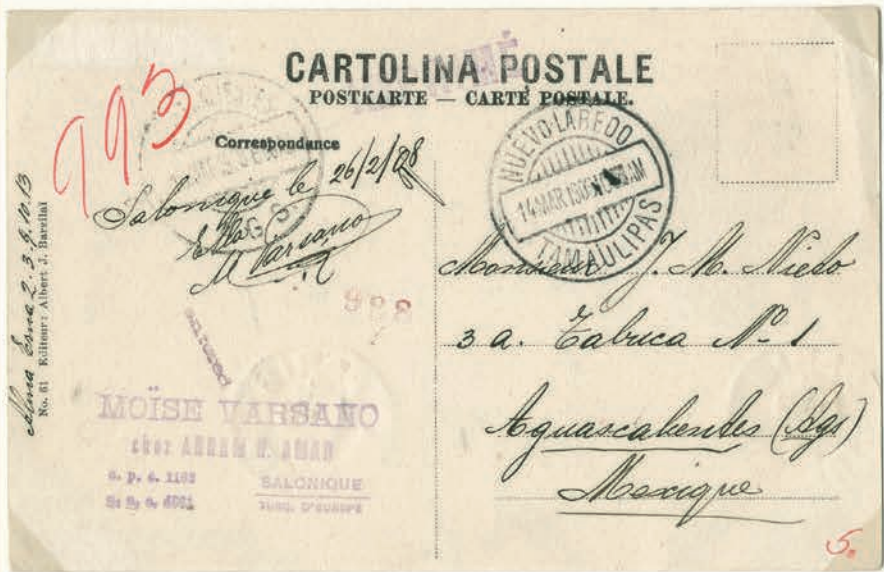 CARTOLINA POSTALE
POSTKARTE — CARTE POSTALE.
993
Correspondance
Salonique le 26/2/08
M Varsano
NUEVO-LAREDO
14 MAR 190
AM
TAMAULIPAS
Monsieur J. M. Nieto
3 a. Tabuca Nº 1
Aguascalientes (Ags)
Mexique
988
MOÏSE VARSANO
chez ABRAM
SALONIQUE
TURQ. D'EUROPE
2. 3. 9. 10. 13
No. 61 Editeur: Albert J. Barzilai
5.